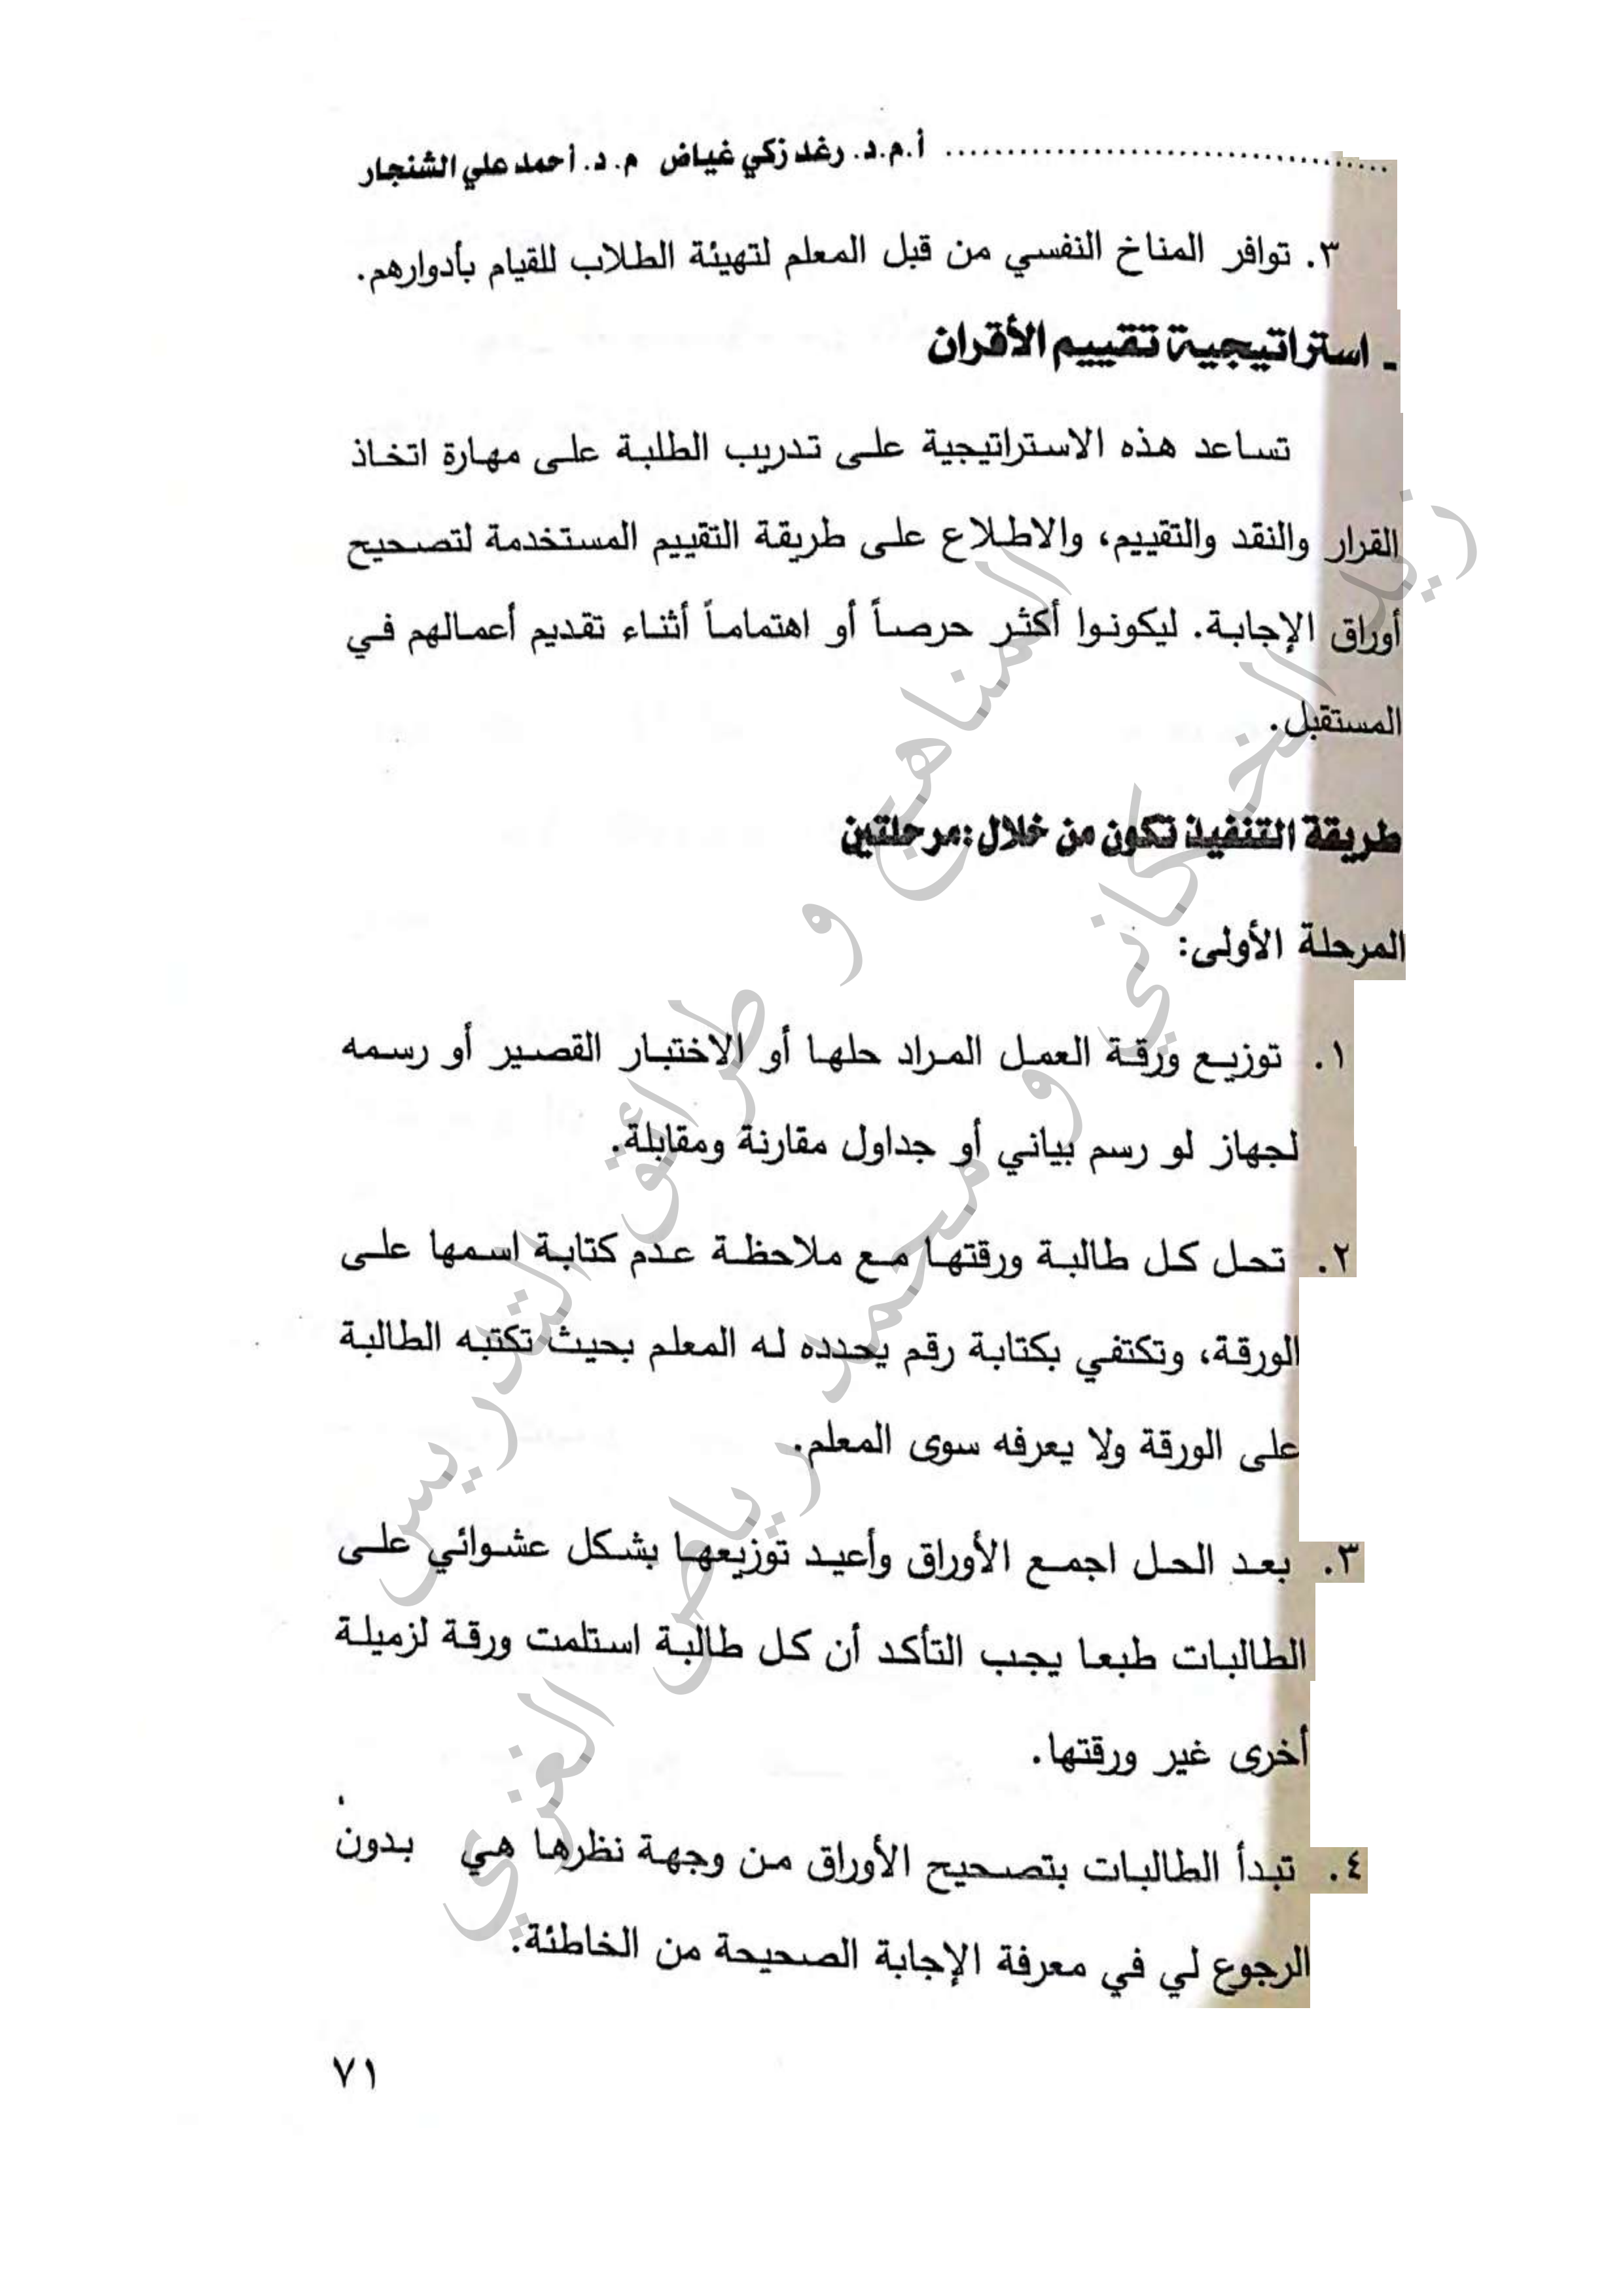 أ.م.د. رغد زكي غياض م. د. أحمد علي الشنجار
٣. توافر المناخ النفسي من قبل المعلم لتهيئة الطلاب للقيام بأدوارهم.
ـ استراتيجية تقييم الأقران
تساعد هذه الاستراتيجية على تدريب الطلبة على مهارة اتخاذ
القرار والنقد والتقييم، والاطلاع على طريقة التقييم المستخدمة لتصحيح
أوراق الإجابة. ليكونوا أكثر حرصاً أو اهتماماً أثناء تقديم أعمالهم في
المستقبل.
طريقة التنفيذ تكون من خلال: مرحلتين
المرحلة الأولى:
١. توزيع ورقة العمل المراد حلها أو الاختبار القصير أو رسمه
لجهاز لو رسم بياني أو جداول مقارنة ومقابلة.
٢. تحل كل طالبة ورقتها مع ملاحظة عدم كتابة اسمها على
الورقة، وتكتفي بكتابة رقم يحدده له المعلم بحيث تكتبه الطالبة
على الورقة ولا يعرفه سوى المعلم.
٣. بعد الحل اجمع الأوراق وأعيد توزيعها بشكل عشوائي على
الطالبات طبعا يجب التأكد أن كل طالبة استلمت ورقة لزميلة
أخرى غير ورقتها.
٤. تبدأ الطالبات بتصحيح الأوراق من وجهة نظرها هي بدون
الرجوع لي في معرفة الإجابة الصحيحة من الخاطئة.
٧١
المناهج و طرائق التدريس
زيد الخيكاني و محمد رياض الغزي